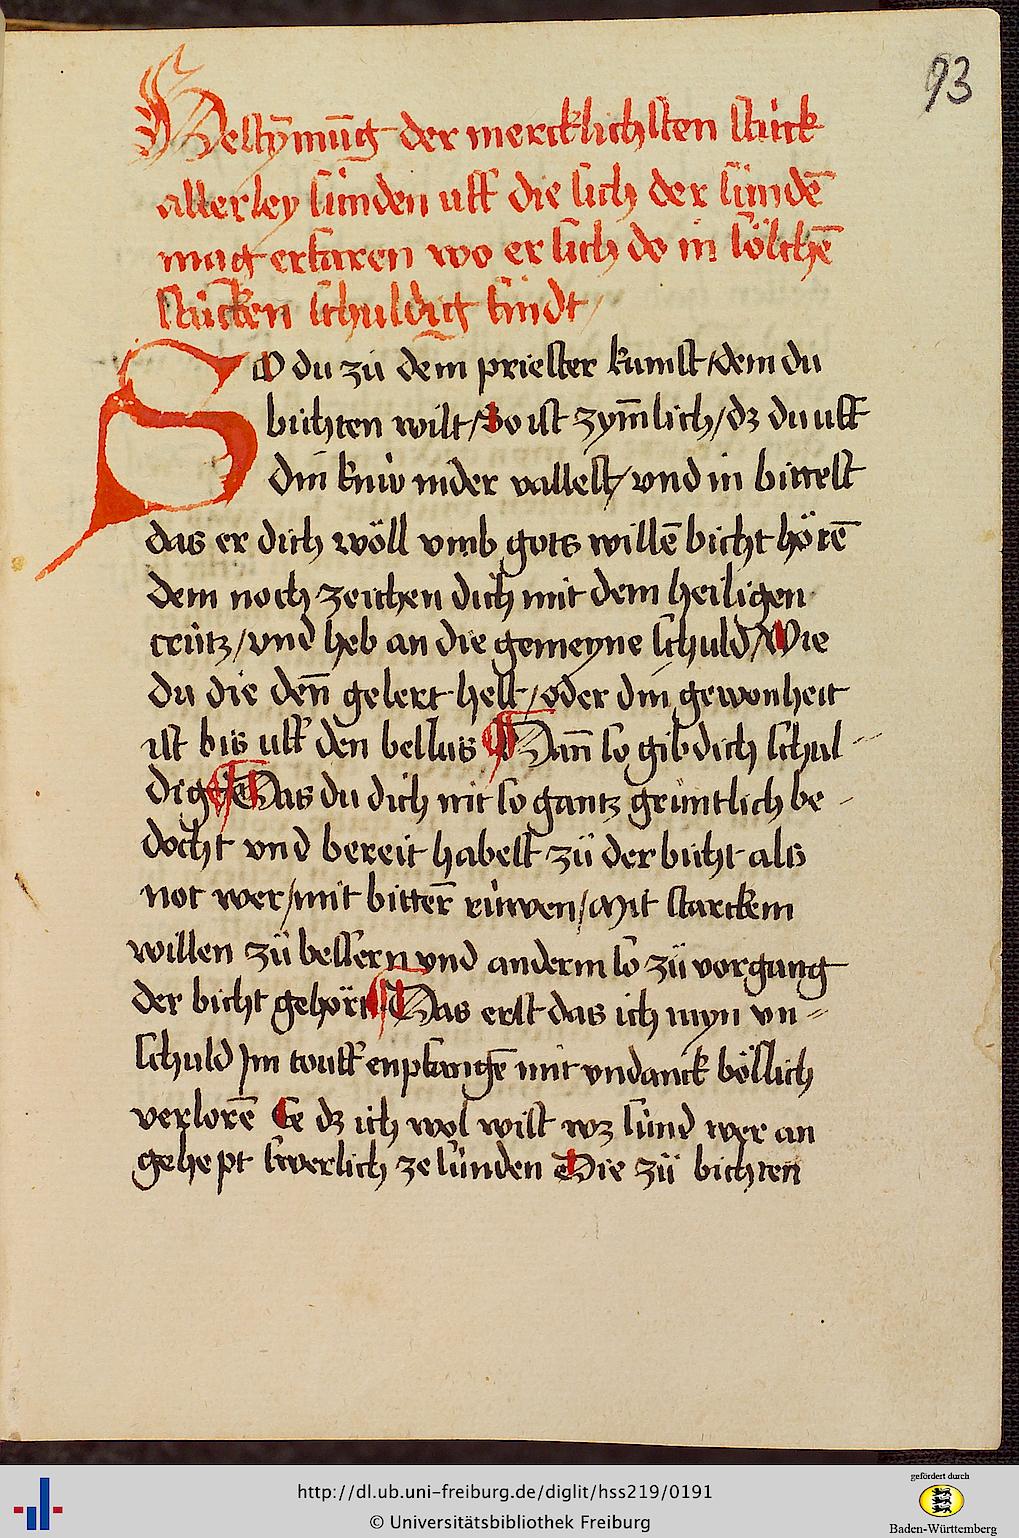 93
Bestỹmūg der mercklichsten stùck
allerley sùnden uff die sich der sùndē
mag erfaren wo er sich do in sölichē
stùcken schuldig findt /
SO du zü dem priester kumst / dem du
bichten wilt / So ist zym̄lich / dz du uff
din knùw nider vallest / vnd in bittest
das er dich wöll vmb gots willē bicht hörē
dem noch zeichen dich mit dem heiligen
crùtz / vnd heb an die gemeyne schuld / Wie
du die den̄ gelert hest / oder din gewonheit
ist bis uff den beslus ¶ Dan̄ so gib dich schul
dig ¶ Das du dich nit so gantz grùntlich be
docht vnd bereit habest zü der bicht als
not wer / mit bitter̄ rùwen / Mit starckem
willen zü bessern vnd anderm so zü vorgang
der bicht gehört ¶ Das erst das ich myn vn
schuld Jm touff enpfangē mit vndanck böslich
verlorē Ee dz ich wol wist wz sùnd wer an
gehept swerlich ze sùnden Die zü bichten
http://dl.ub.uni-freiburg.de/diglit/hss219/0191
© Universitätsbibliothek Freiburg
gefördert durch
Baden-Württemberg